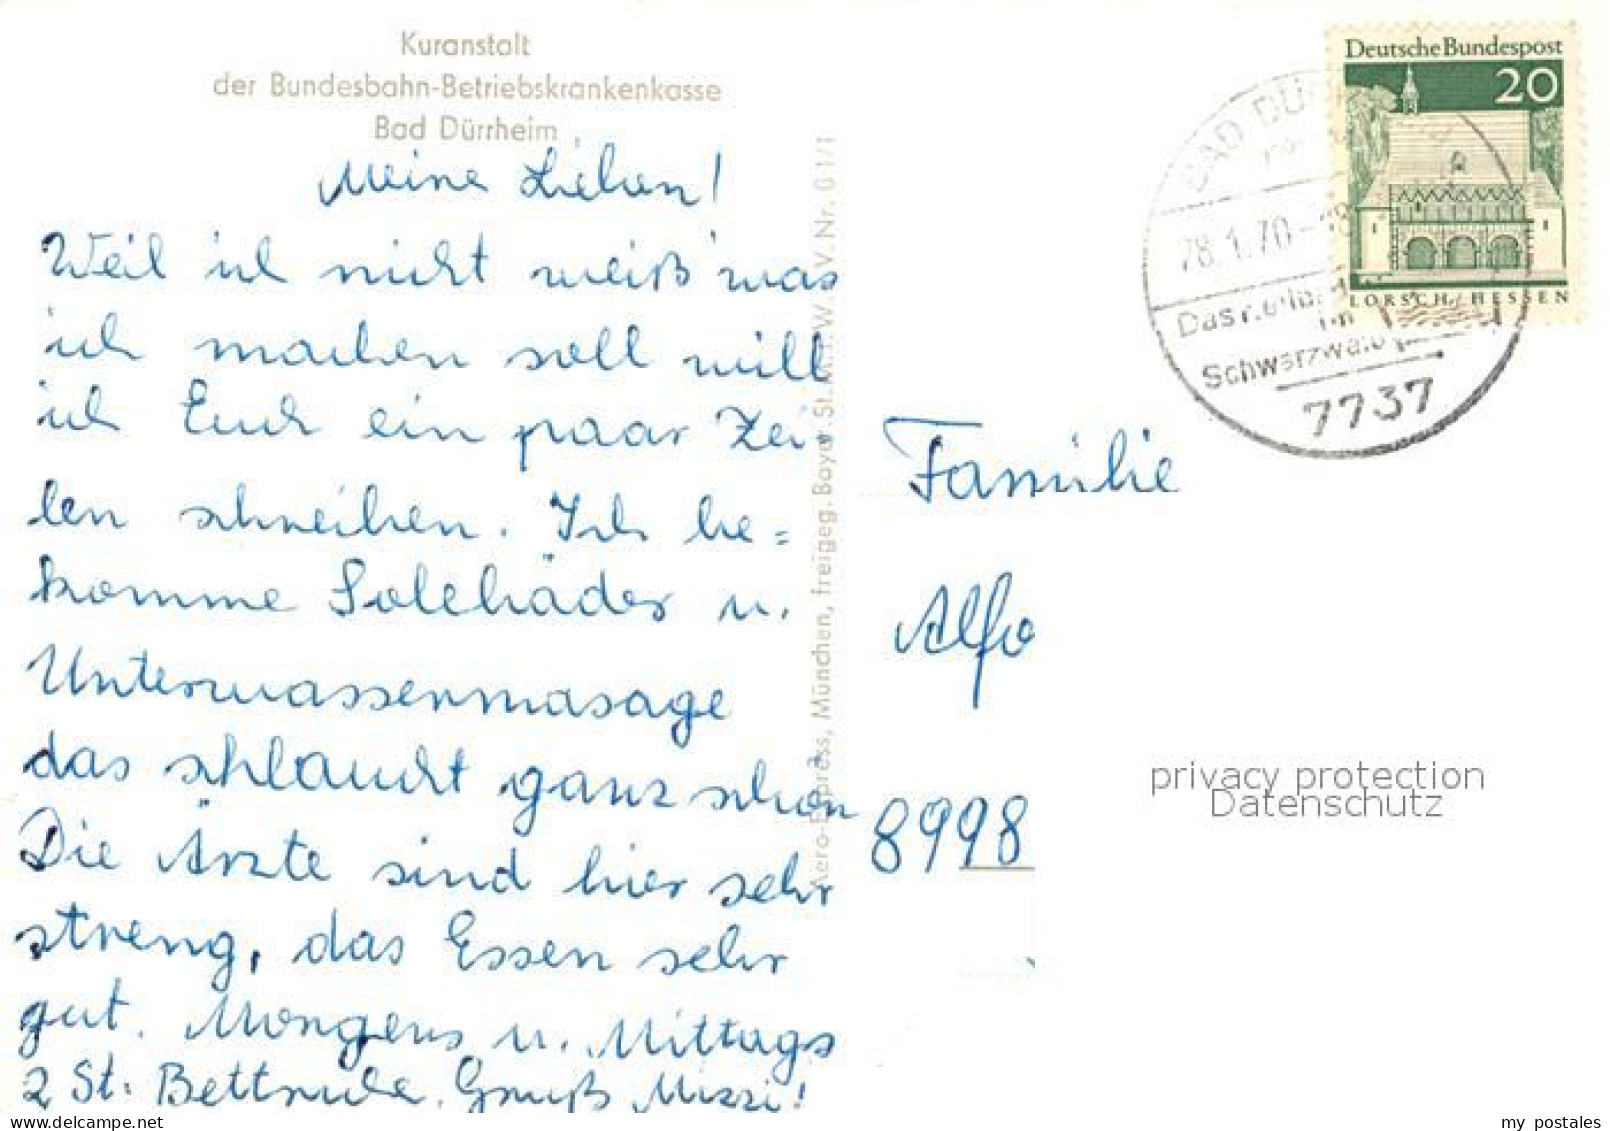 Kuranstalt
der Bundesbahn-Betriebskrankenkasse
Bad Dürrheim
Meine Lieben!
Weil ich nicht weiß was
ich machen soll will
ich Euch ein paar Zei
len schreiben. Ich be=
komme Solebäder u.
Unterwassermasage
das schlaucht ganz schön
Die Ärzte sind hier sehr
streng, das Essen sehr
gut. Morgens u. Mittags
2 St. Bettruhe. Gruß Mizzi!
Aero-Express, München, freigeg. Bayer. St. M. f. W. V. Nr. G 1/1
Deutsche Bundespost
20
LORSCH/HESSEN
BAD DÜ
28.1.70
Das
im
Schwarzwald
7737
Familie
Alfo
8998
privacy protection
Datenschutz
my postales